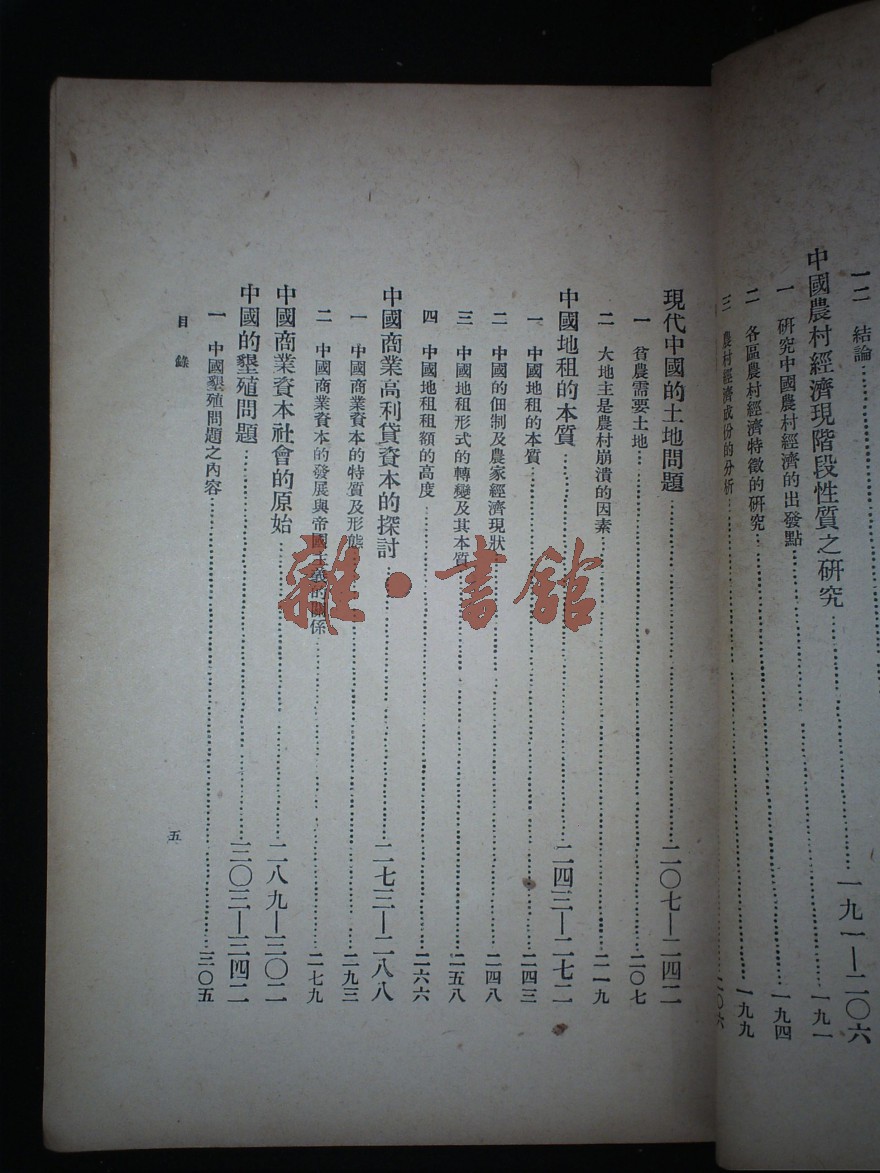 一二 結論……
中國農村經濟現階段性質之研究……一九一—二〇六
一 研究中國農村經濟的出發點……一九一
二 各區農村經濟特徵的研究……一九四
三 農村經濟成份的分析……一九九
二〇六
現代中國的土地問題……二〇七—二四二
一 貧農需要土地……二〇七
二 大地主是農村崩潰的因素……二一九
中國地租的本質……二四三—二七二
一 中國地租的本質……二四三
二 中國的佃制及農家經濟現狀……二四八
三 中國地租形式的轉變及其本質……二五八
四 中國地租租額的高度……二六六
中國商業高利貸資本的探討……二七三—二八八
一 中國商業資本的特質及形態……二九三
二 中國商業資本的發展與帝國主義的關係……二七九
中國商業資本社會的原始……二八九—三〇二
中國的墾殖問題……三〇三—三四二
一 中國墾殖問題之內容……三〇五
目錄
五
雜·書館